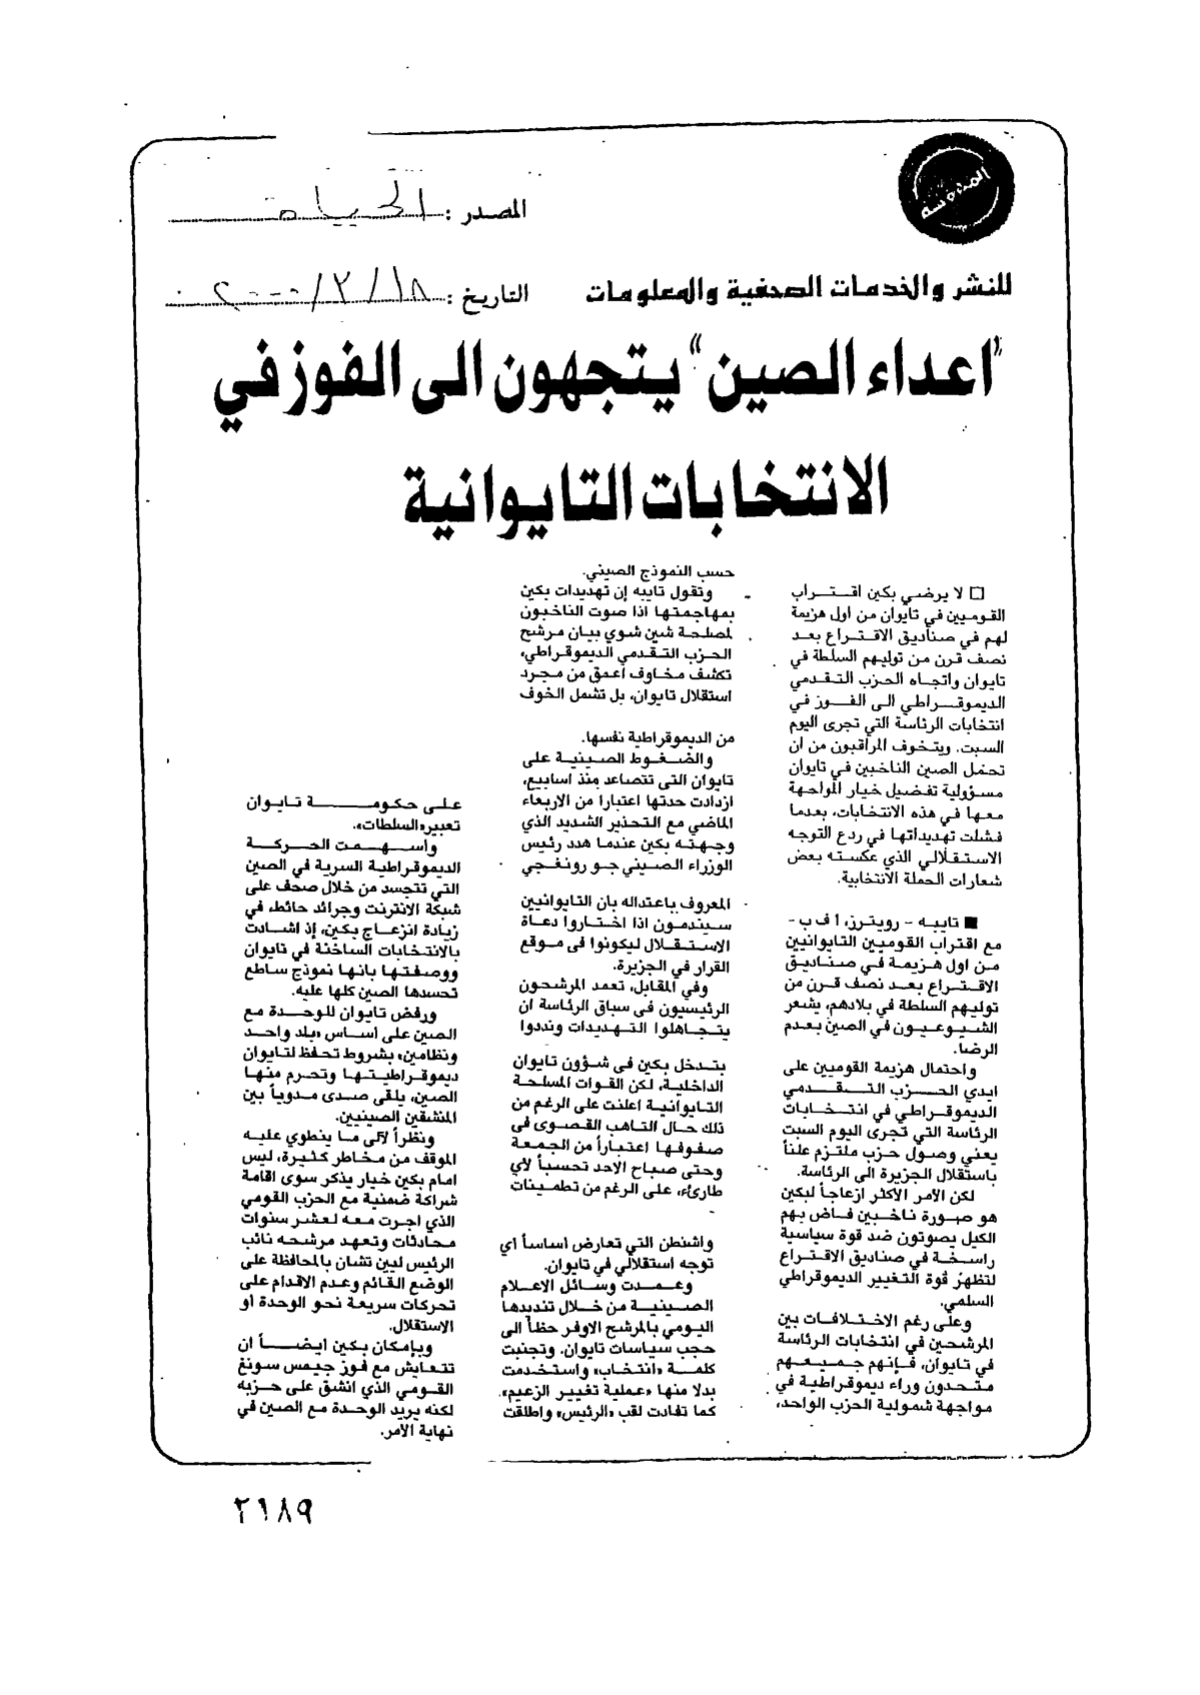 المصدر : الحياة
للنشر والخدمات الصحفية والمعلومات
التاريخ : ١٨/٣/٢٠٠٠
"اعداء الصين" يتجهون الى الفوز في
الانتخابات التايوانية
□ لا يرضي بكين اقتراب
القوميين في تايوان من اول هزيمة
لهم في صناديق الاقتراع بعد
نصف قرن من توليهم السلطة في
تايوان واتجاه الحزب التقدمي
الديموقراطي الى الفوز في
انتخابات الرئاسة التي تجرى اليوم
السبت. ويتخوف المراقبون من ان
تحمل الصين الناخبين في تايوان
مسؤولية تفضيل خيار المواجهة
معها في هذه الانتخابات، بعدما
فشلت تهديداتها في ردع التوجه
الاستقلالي الذي عكسته بعض
شعارات الحملة الانتخابية.
■ تايبه - رويترز، ا ف ب -
مع اقتراب القوميين التايوانيين
من اول هزيمة في صناديق
الاقتراع بعد نصف قرن من
توليهم السلطة في بلادهم، يشعر
الشيوعيون في الصين بعدم
الرضا.
واحتمال هزيمة القوميين على
ايدي الحزب التقدمي
الديموقراطي في انتخابات
الرئاسة التي تجرى اليوم السبت
يعني وصول حزب ملتزم علناً
باستقلال الجزيرة الى الرئاسة.
لكن الامر الاكثر ازعاجاً لبكين
هو صورة ناخبين فاض بهم
الكيل يصوتون ضد قوة سياسية
راسخة في صناديق الاقتراع
لتظهر قوة التغيير الديموقراطي
السلمي.
وعلى رغم الاختلافات بين
المرشحين في انتخابات الرئاسة
في تايوان، فإنهم جميعهم
متحدون وراء ديموقراطية في
مواجهة شمولية الحزب الواحد،
حسب النموذج الصيني.
وتقول تايبه إن تهديدات بكين
بمهاجمتها اذا صوت الناخبون
لمصلحة شين شوي بيان مرشح
الحزب التقدمي الديموقراطي،
تكشف مخاوف اعمق من مجرد
استقلال تايوان، بل تشمل الخوف
من الديموقراطية نفسها.
والضغوط الصينية على
تايوان التي تتصاعد منذ اسابيع،
ازدادت حدتها اعتبارا من الاربعاء
الماضي مع التحذير الشديد الذي
وجهته بكين عندما هدد رئيس
الوزراء الصيني جو رونغجي
المعروف باعتداله بان التايوانيين
سيندمون اذا اختاروا دعاة
الاستقلال ليكونوا في موقع
القرار في الجزيرة.
وفي المقابل، تعمد المرشحون
الرئيسيون في سباق الرئاسة ان
يتجاهلوا التهديدات ونددوا
بتدخل بكين في شؤون تايوان
الداخلية، لكن القوات المسلحة
التايوانية اعلنت على الرغم من
ذلك حال التاهب القصوى في
صفوفها اعتباراً من الجمعة
وحتى صباح الاحد تحسباً لاي
طارئ، على الرغم من تطمينات
واشنطن التي تعارض اساساً اي
توجه استقلالي في تايوان.
وعمدت وسائل الاعلام
الصينية من خلال تنديدها
اليومي بالمرشح الاوفر حظاً الى
حجب سياسات تايوان. وتجنبت
كلمة «انتخاب» واستخدمت
بدلا منها «عملية تغيير الزعيم».
كما تفادت لقب «الرئيس» واطلقت
على حكومة تايوان
تعبير «السلطات».
واسهمت الحركة
الديموقراطية السرية في الصين
التي تتجسد من خلال صحف على
شبكة الانترنت وجرائد حائط، في
زيادة انزعاج بكين، إذ اشادت
بالانتخابات الساخنة في تايوان
ووصفتها بانها نموذج ساطع
تحسدها الصين كلها عليه.
ورفض تايوان للوحدة مع
الصين على اساس «بلد واحد
ونظامين» بشروط تحفظ لتايوان
ديموقراطيتها وتحرم منها
الصين، يلقى صدى مدوياً بين
المنشقين الصينيين.
ونظراً لالى ما ينطوي عليه
الموقف من مخاطر كثيرة، ليس
امام بكين خيار يذكر سوى اقامة
شراكة ضمنية مع الحزب القومي
الذي اجرت معه لعشر سنوات
محادثات وتعهد مرشحه نائب
الرئيس ليين تشان بالمحافظة على
الوضع القائم وعدم الاقدام على
تحركات سريعة نحو الوحدة او
الاستقلال.
وبإمكان بكين ايضاً ان
تتعايش مع فوز جيمس سونغ
القومي الذي انشق على حزبه
لكنه يريد الوحدة مع الصين في
نهاية الامر.
٢١٨٩